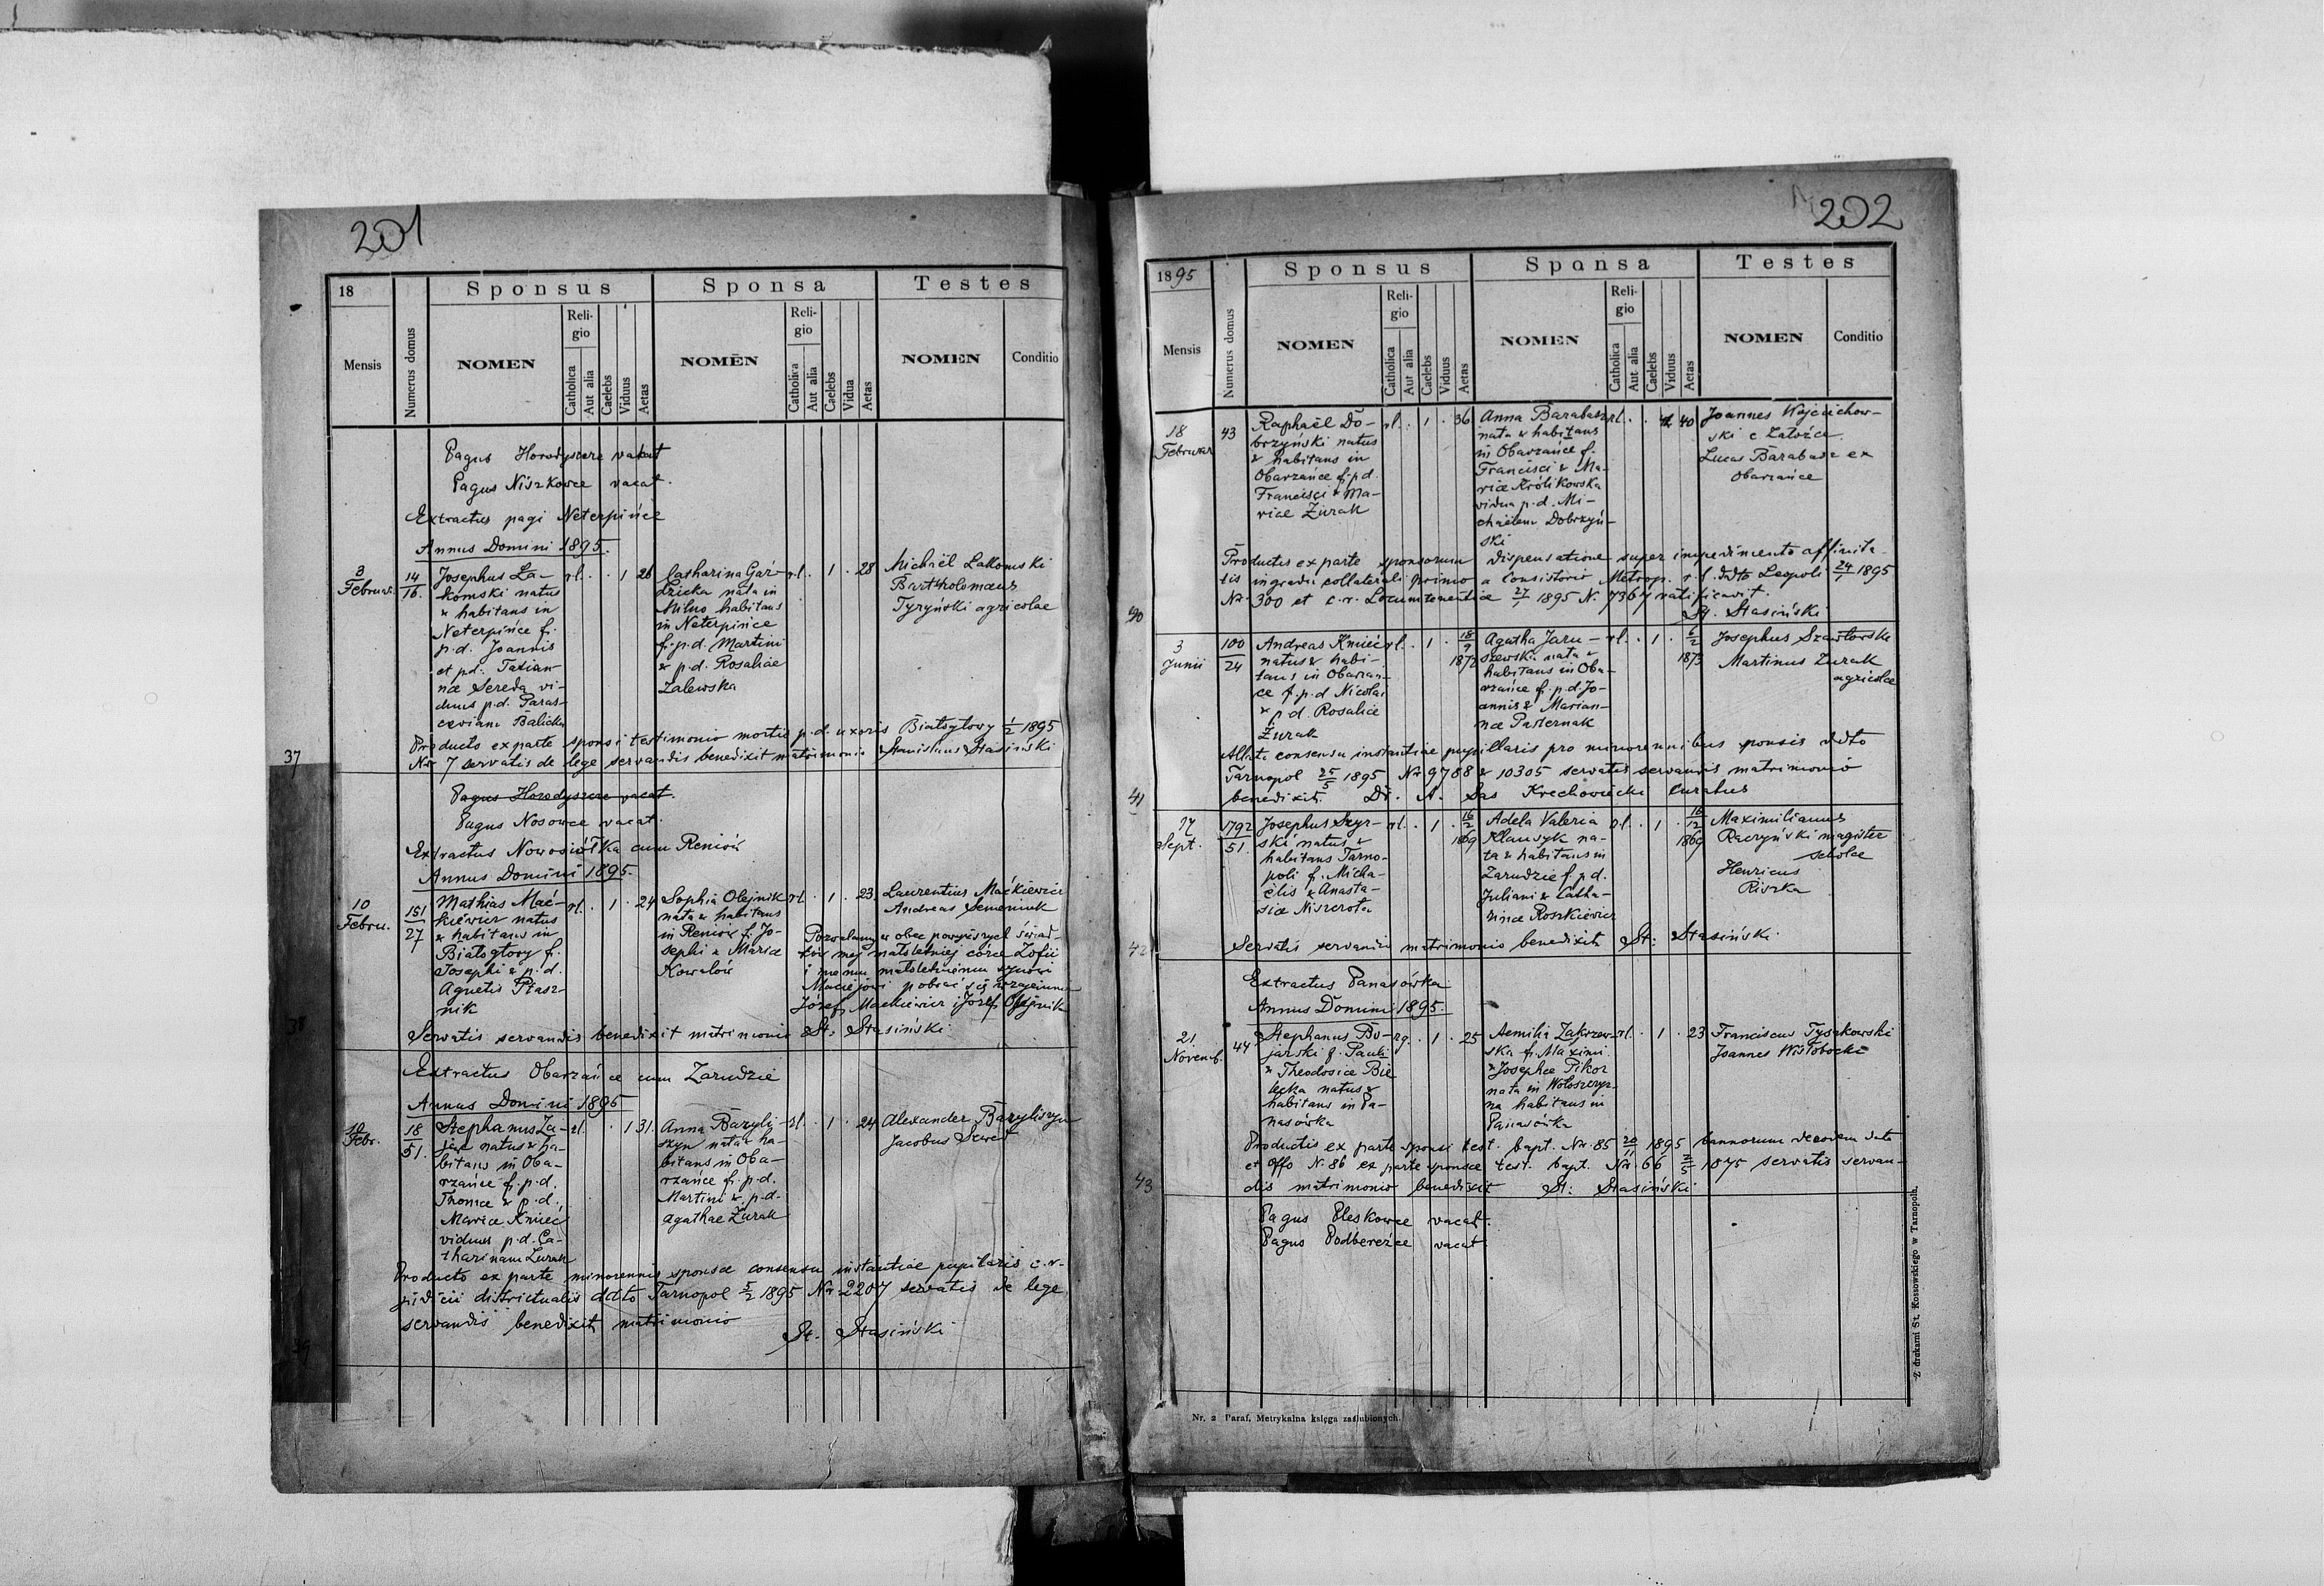 201
18
Sponsus
Sponsa
Testes
Mensis
Numerus domus
NOMEN
Religio
Catholica
Aut alia
Caelebs
Viduus
Aetas
NOMEN
Religio
Catholica
Aut alia
Caelebs
Vidua
Aetas
NOMEN
Conditio
Pagus Horodyszcze vacat
Pagus Niszkowce vacat.
Extractus pagi Neterpińce
Annus Domini 1895.
3
Februar.
14
16.
Josephus Ła-
komski natus
& habitans in
Neterpińce f.
p.d. Joannis
et p.d. Tatian-
nae Sereda vi-
duus p.d. Paras-
ceviam Balicka
rl. . . 1 26
Catharina Gar-
nata in
Milno habitans
in Neterpińce
f. p.d. Martini
& p.d. Rosaliae
Zalewska
rl. . 1 . 28
Michaël Łakomski
Bartholomaeus
Tyryński agricolae
Producto ex parte sponsi testimonio mortis p.d. uxoris Białogłowy 1/2 1895
Nr 7 servatis de lege servandis benedixit matrimonio Stanislaus Stasiński
37
Pagus Horodyszcze vacat.
Pagus Nosowce vacat.
Extractus Nowosiółka cum Reniów
Annus Domini 1895.
10
Febru.
151
27
Mathias Mać-
kiewicz natus
& habitans in
Białogłowy f.
Josephi & p.d.
Agnetis Ptasz-
nik
rl. . 1 . 24
Sophia Olejnik
nata & habitans
in Reniów f. Jo-
sephi & Mariae
Kowalów
rl. . 1 . 23.
Laurentius Maćkiewicz
Andreas Semeniuk
Pozwalamy w obec powyższych świad-
ków mej małoletniej córce Zofii
i memu małoletniemu synowi
Maciejowi pobrać się wzajemnie
Józef Maćkiewicz i Józef Olejnik
38
Servatis servandis benedixit matrimonio St: Stasiński
Extractus Obarzańce cum Zarudzie
Annus Domini 1895
10
Febr.
18
51.
Stephanus Za-
jąc natus & ha-
bitans in Oba-
rzańce f. p.d.
Thomae & p.d.
Mariae Kmieć
viduus p.d. Ca-
tharinam Żurak
rl. . . 1 31.
Anna Baryli-
szyn nata & ha-
bitans in Oba-
rzańce f. p.d.
Martini & p.d.
Agathae Żurak
rl. . 1 . 24
Alexander Baryliszyn
Jacobus Seweri
Producto ex parte minorennis sponsae consensu instantiae pupilaris c.r.
judicii districtualis ddto Tarnopol 5/2 1895 Nr 2207 servatis de lege
servandis benedixit matrimonio
St. Stasiński
39
202
1895
Sponsus
Sponsa
Testes
Mensis
Numerus domus
NOMEN
Religio
Catholica
Aut alia
Caelebs
Viduus
Aetas
NOMEN
Religio
Catholica
Aut alia
Caelebs
Viduus
Aetas
NOMEN
Conditio
18
Februar
43
Raphaël Do-
brzyński natus
& habitans in
Obarzańce f. p.d.
Francisci & Ma-
riae Żurak
rl. . 1 . 36
Anna Barabasz
nata & habitans
in Obarzańce f.
Francisci & Ma-
riae Królikowska
vidua p.d. Mi-
chaëlem Dobrzyń-
ski
rl. . . 40
Joannes Wojciechow-
ski e Załoźce.
Lucas Barabasz ex
Obarzańce
Productis ex parte sponsorum dispensatione super impedimento affinita-
tis in gradu collaterali primo a Consistorio Metrop. r.l. ddto Leopoli 24/1 1895
Nr. 300 et c.r. Locumtenentiae 27/1 1895 N. 7367 ratificavit.
St. Stasiński
40
3
Junii
100
24
Andreas Kmieć
natus & habi-
tans in Obarzań-
ce f. p.d. Nicolai
& p.d. Rosaliae
Żurak
rl. . 1 . 18/9
1872
Agatha Jaru-
szewska nata &
habitans in Oba-
rzańce f. p.d. Jo-
annis & Marian-
nae Pasternak
rl. . 1 . 6/2
1873
Josephus Szawłowski
Martinus Żurak
agricolae
Allato consensu instantiae pupillaris pro minorennibus sponsis ddto
Tarnopol 25/5 1895 Nr 9788 & 10305 servatis servandis matrimonio
benedixit. Dr. A. Sas Krechowiecki Curatus
41
17
Sept.
1792
51.
Josephus Szyr-
ski natus &
habitans Tarno-
poli f. Micha-
ëlis & Anasta-
siae Niszczota
rl. . 1 . 16/2
1869
Adela Valeria
Klamsyk na-
ta & habitans in
Zarudzie f. p.d.
Juliani & Catha-
rinae Roszkiewicz
rl. . 1 . 16/12
1869
Maximilianus
Raczyński magister
scholae
Henricus
Riszka
42
Servatis servandis matrimonio benedixit St: Stasiński
Extractus Panasówka
Annus Domini 1895.
21
Novemb.
44
Stephanus Bo-
jarski f. Pauli
& Theodosiae Bie-
lecka natus &
habitans in Pa-
nasówka
rg. . 1 . 25
Aemilia Zakrzew-
ska f. Maximi.
& Josephae Pikor
nata in Wołoszczyz-
na habitans in
Panasówka
rl. . 1 . 23
Franciscus Tyszkowski
Joannes Wisłobocki
Productis ex parte sponsi test. bapt. Nr. 85 20/11 1895 bannorum deeodem dato
et offo N. 86 ex parte sponsae test. bapt. Nr 66 1875 servatis servan-
dis matrimonio benedixit St: Stasiński
43
Pagus Pleskowce vacat.
Pagus Podberezce vacat.
Nr. 2 Paraf. Metrykalna księga zaślubionych.
Z drukarni St. Kossowskiego w Tarnopolu.